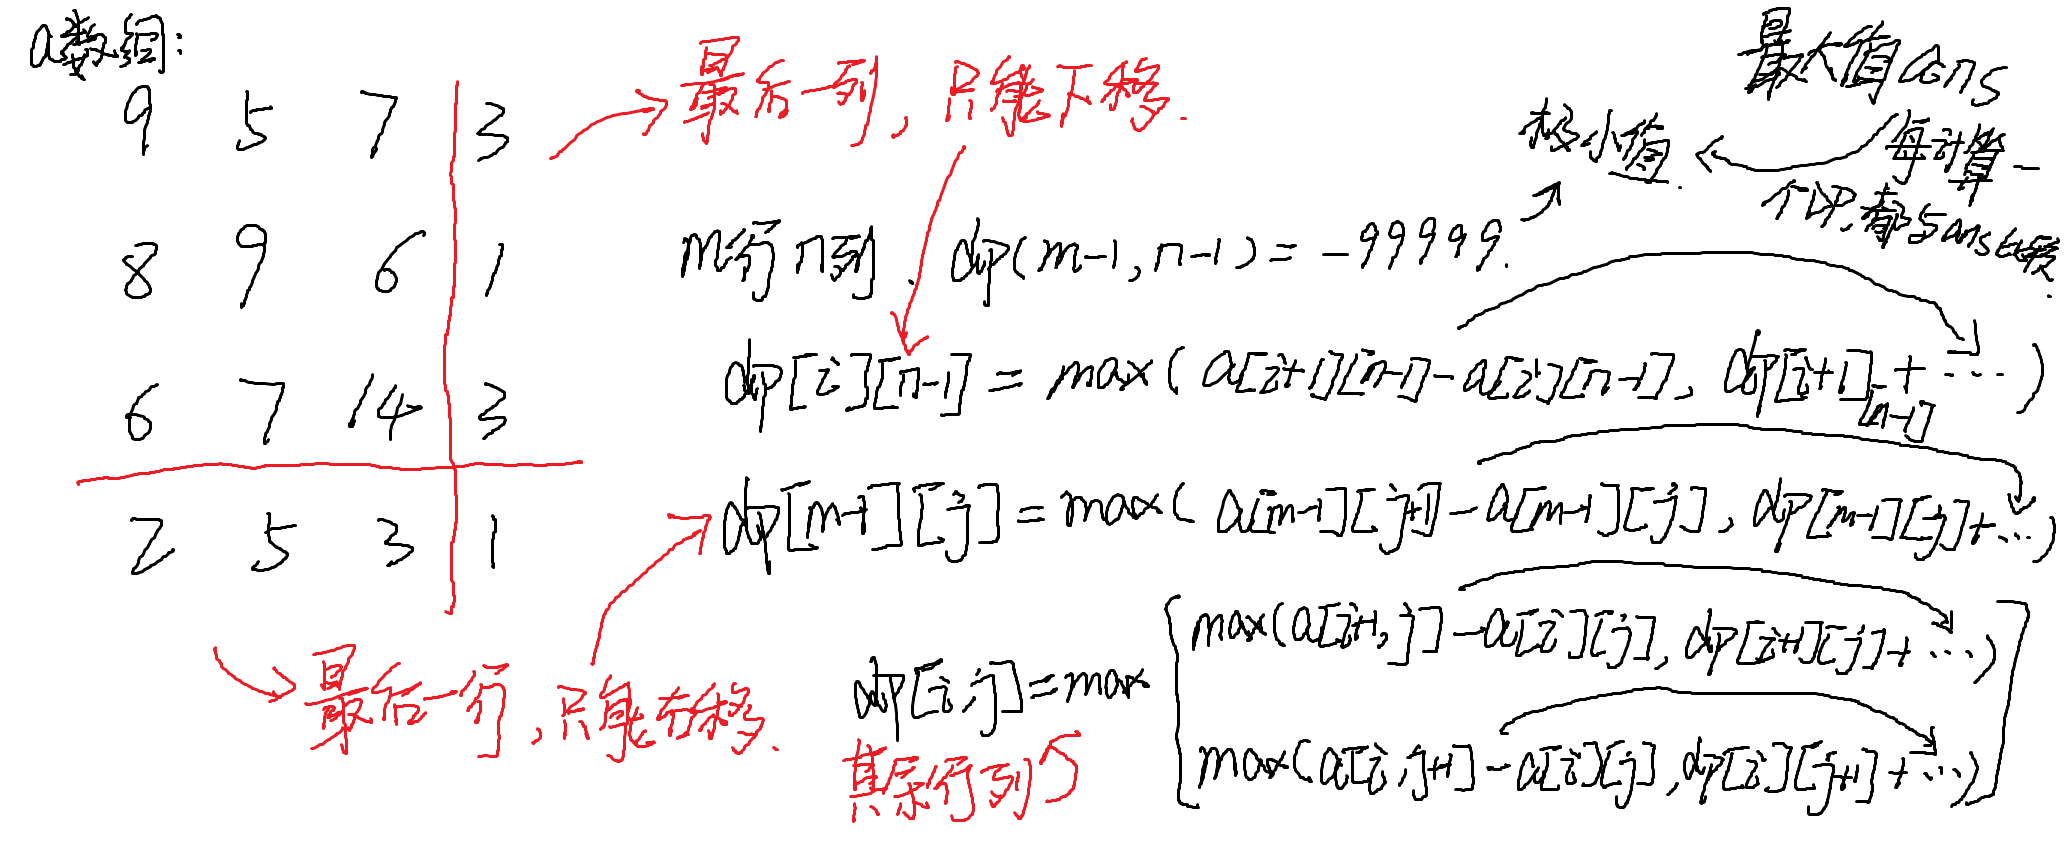 a数组:
9 5 7 3
8 9 6 1
6 7 14 3
2 5 3 1
最后一列, 只能下移.
最后一行, 只能右移.
最大值ans
每计算一
个DP,都与ans比较.
极小值.
m行n列. dp(m-1,n-1)=-99999.
dp[i][n-1]=max(a[i+1][n-1]-a[i][n-1], dp[i+1][n-1]+...)
dp[m-1][j]=max(a[m-1][j+1]-a[m-1][j], dp[m-1][j]+...)
dp[i,j]=max
max(a[i+1,j]-a[i][j], dp[i+1][j]+...)
max(a[i,j+1]-a[i][j], dp[i][j+1]+...)
其余行列